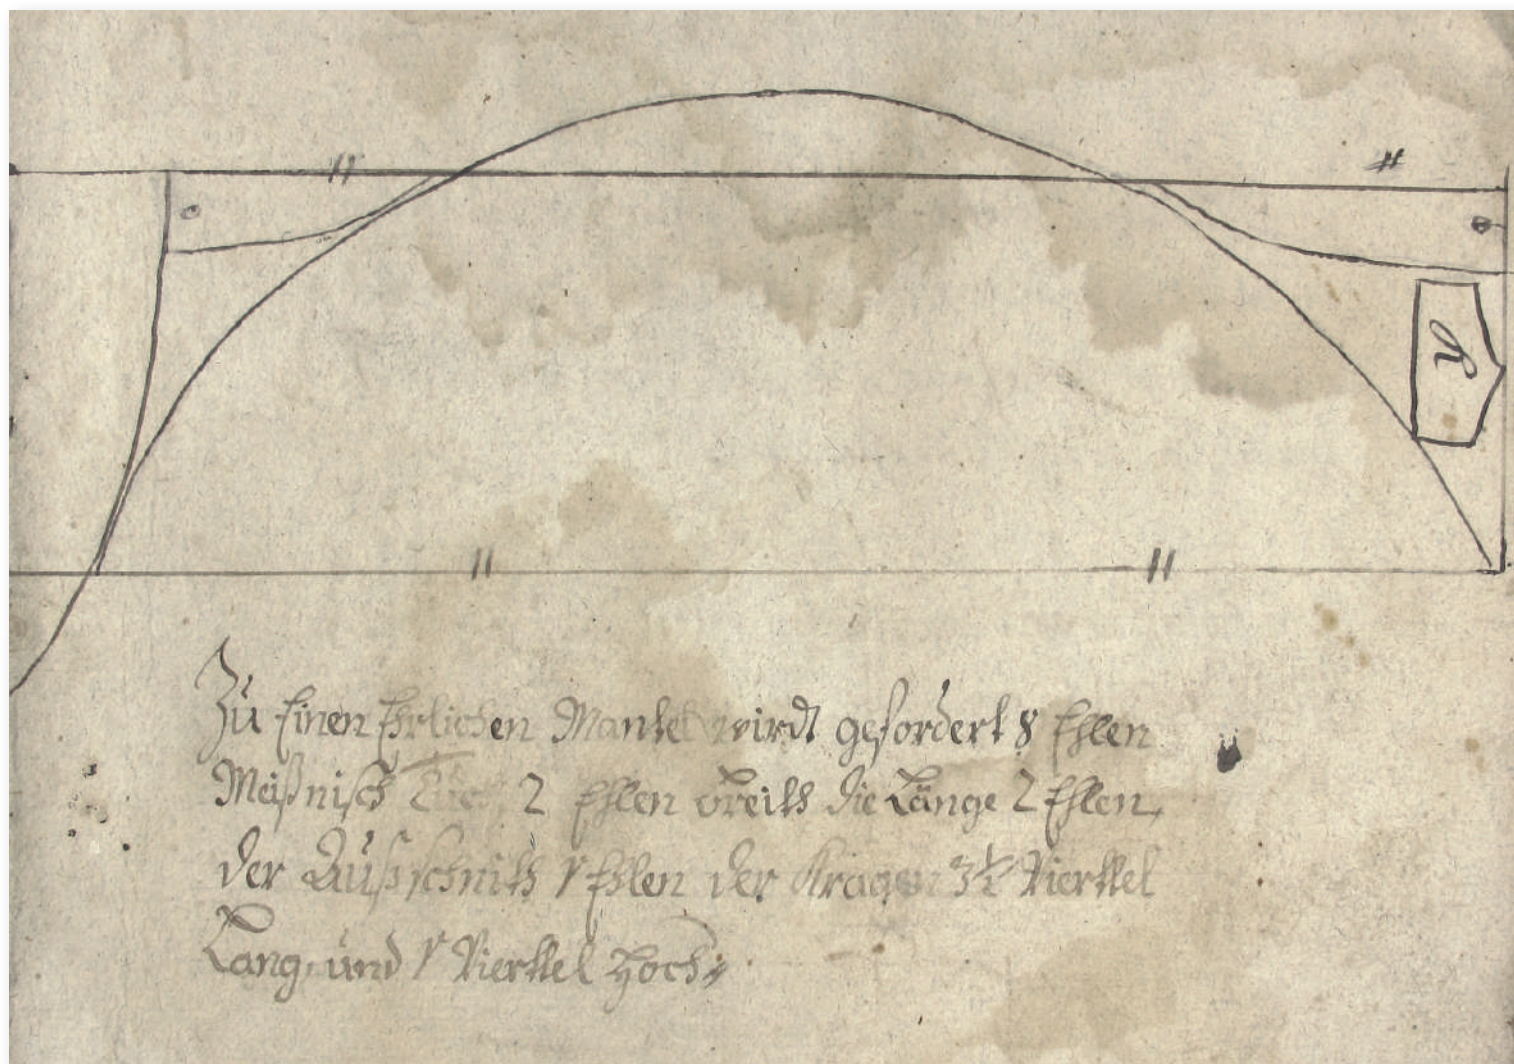 k
Zu Einen Ehrlichen Mantel wirdt gefordert 8 Ehlen
Meißnisch Tuch, 2 Ehlen breith die Länge 2 Ehlen,
der Außschnith 1 Ehlen der Kragen 3½ Vierttel
Lang, und 1 Vierttel Hoch